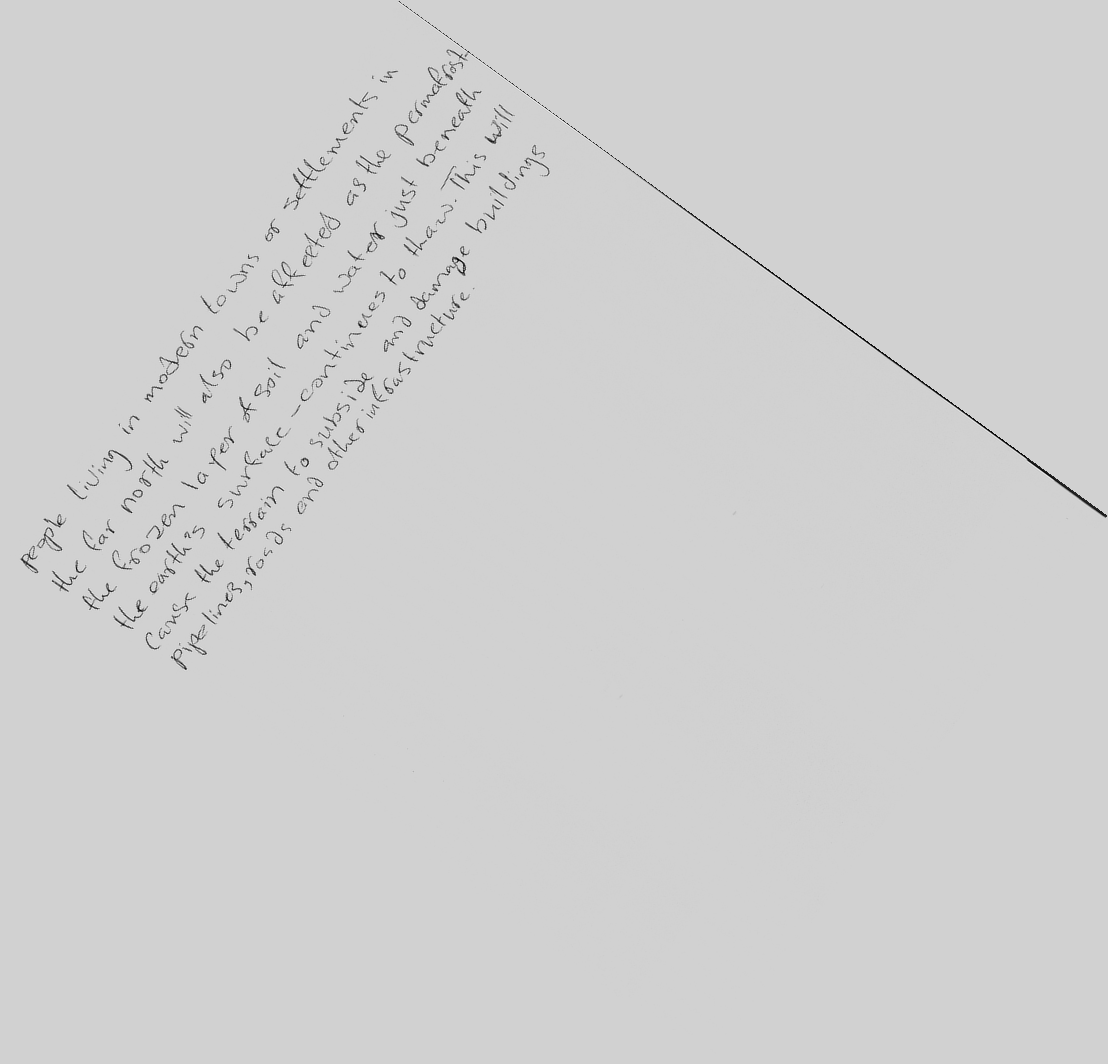 people living in modern towns or settlements in
the far north will also be affected as the permafrost-
the frozen layer of soil and water just beneath
the earth's surface -continues to thaw. This will
cause the terrain to subside and damage buildings
pipelines, roads and other infrastructure.